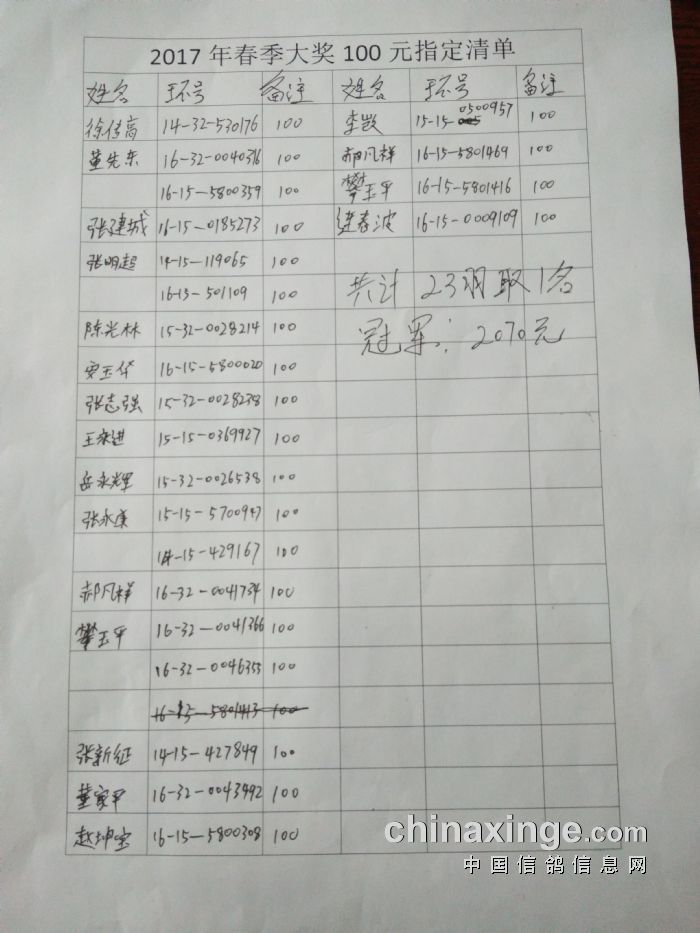 2017 年春季大奖 100 元指定清单
姓名 环号 备注 姓名 环号 备注
徐传高 14-32-530176 100 李敳 15-15-0500957 100
董先东 16-32-0040316 100 郝凡祥 16-15-5801469 100
16-15-5800359 100 攀玉平 16-15-5801416 100
张建城 16-15-0185273 100 春波 16-15-0009109 100
张明超 14-15-119065 100
16-15-501109 100 共计 23羽取1名
陈光林 15-32-0028214 100 冠军: 2070元
安玉华 16-15-5800020 100
张志强 15-32-0028238 100
王永进 15-15-0369927 100
岳永辉 15-32-0026538 100
张永康 15-15-5700947 100
14-15-429167 100
郝凡祥 16-32-0041734 100
攀玉平 16-32-0041366 100
16-32-0046355 100
16-15-5801413 100
张新征 14-15-427849 100
董家甲 16-32-0043492 100
赵坤宝 16-15-5800308 100
chinaxinge.com
中国信鸽信息网